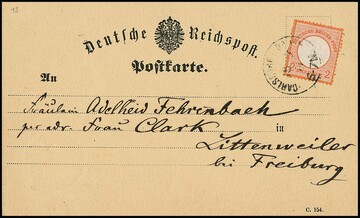 Deutsche Reichspost.
Postkarte.
An
Fräulein Adelheid Fehrenbach
per adr. Frau Clark in
Littenweiler
bei Freiburg
C. 154.